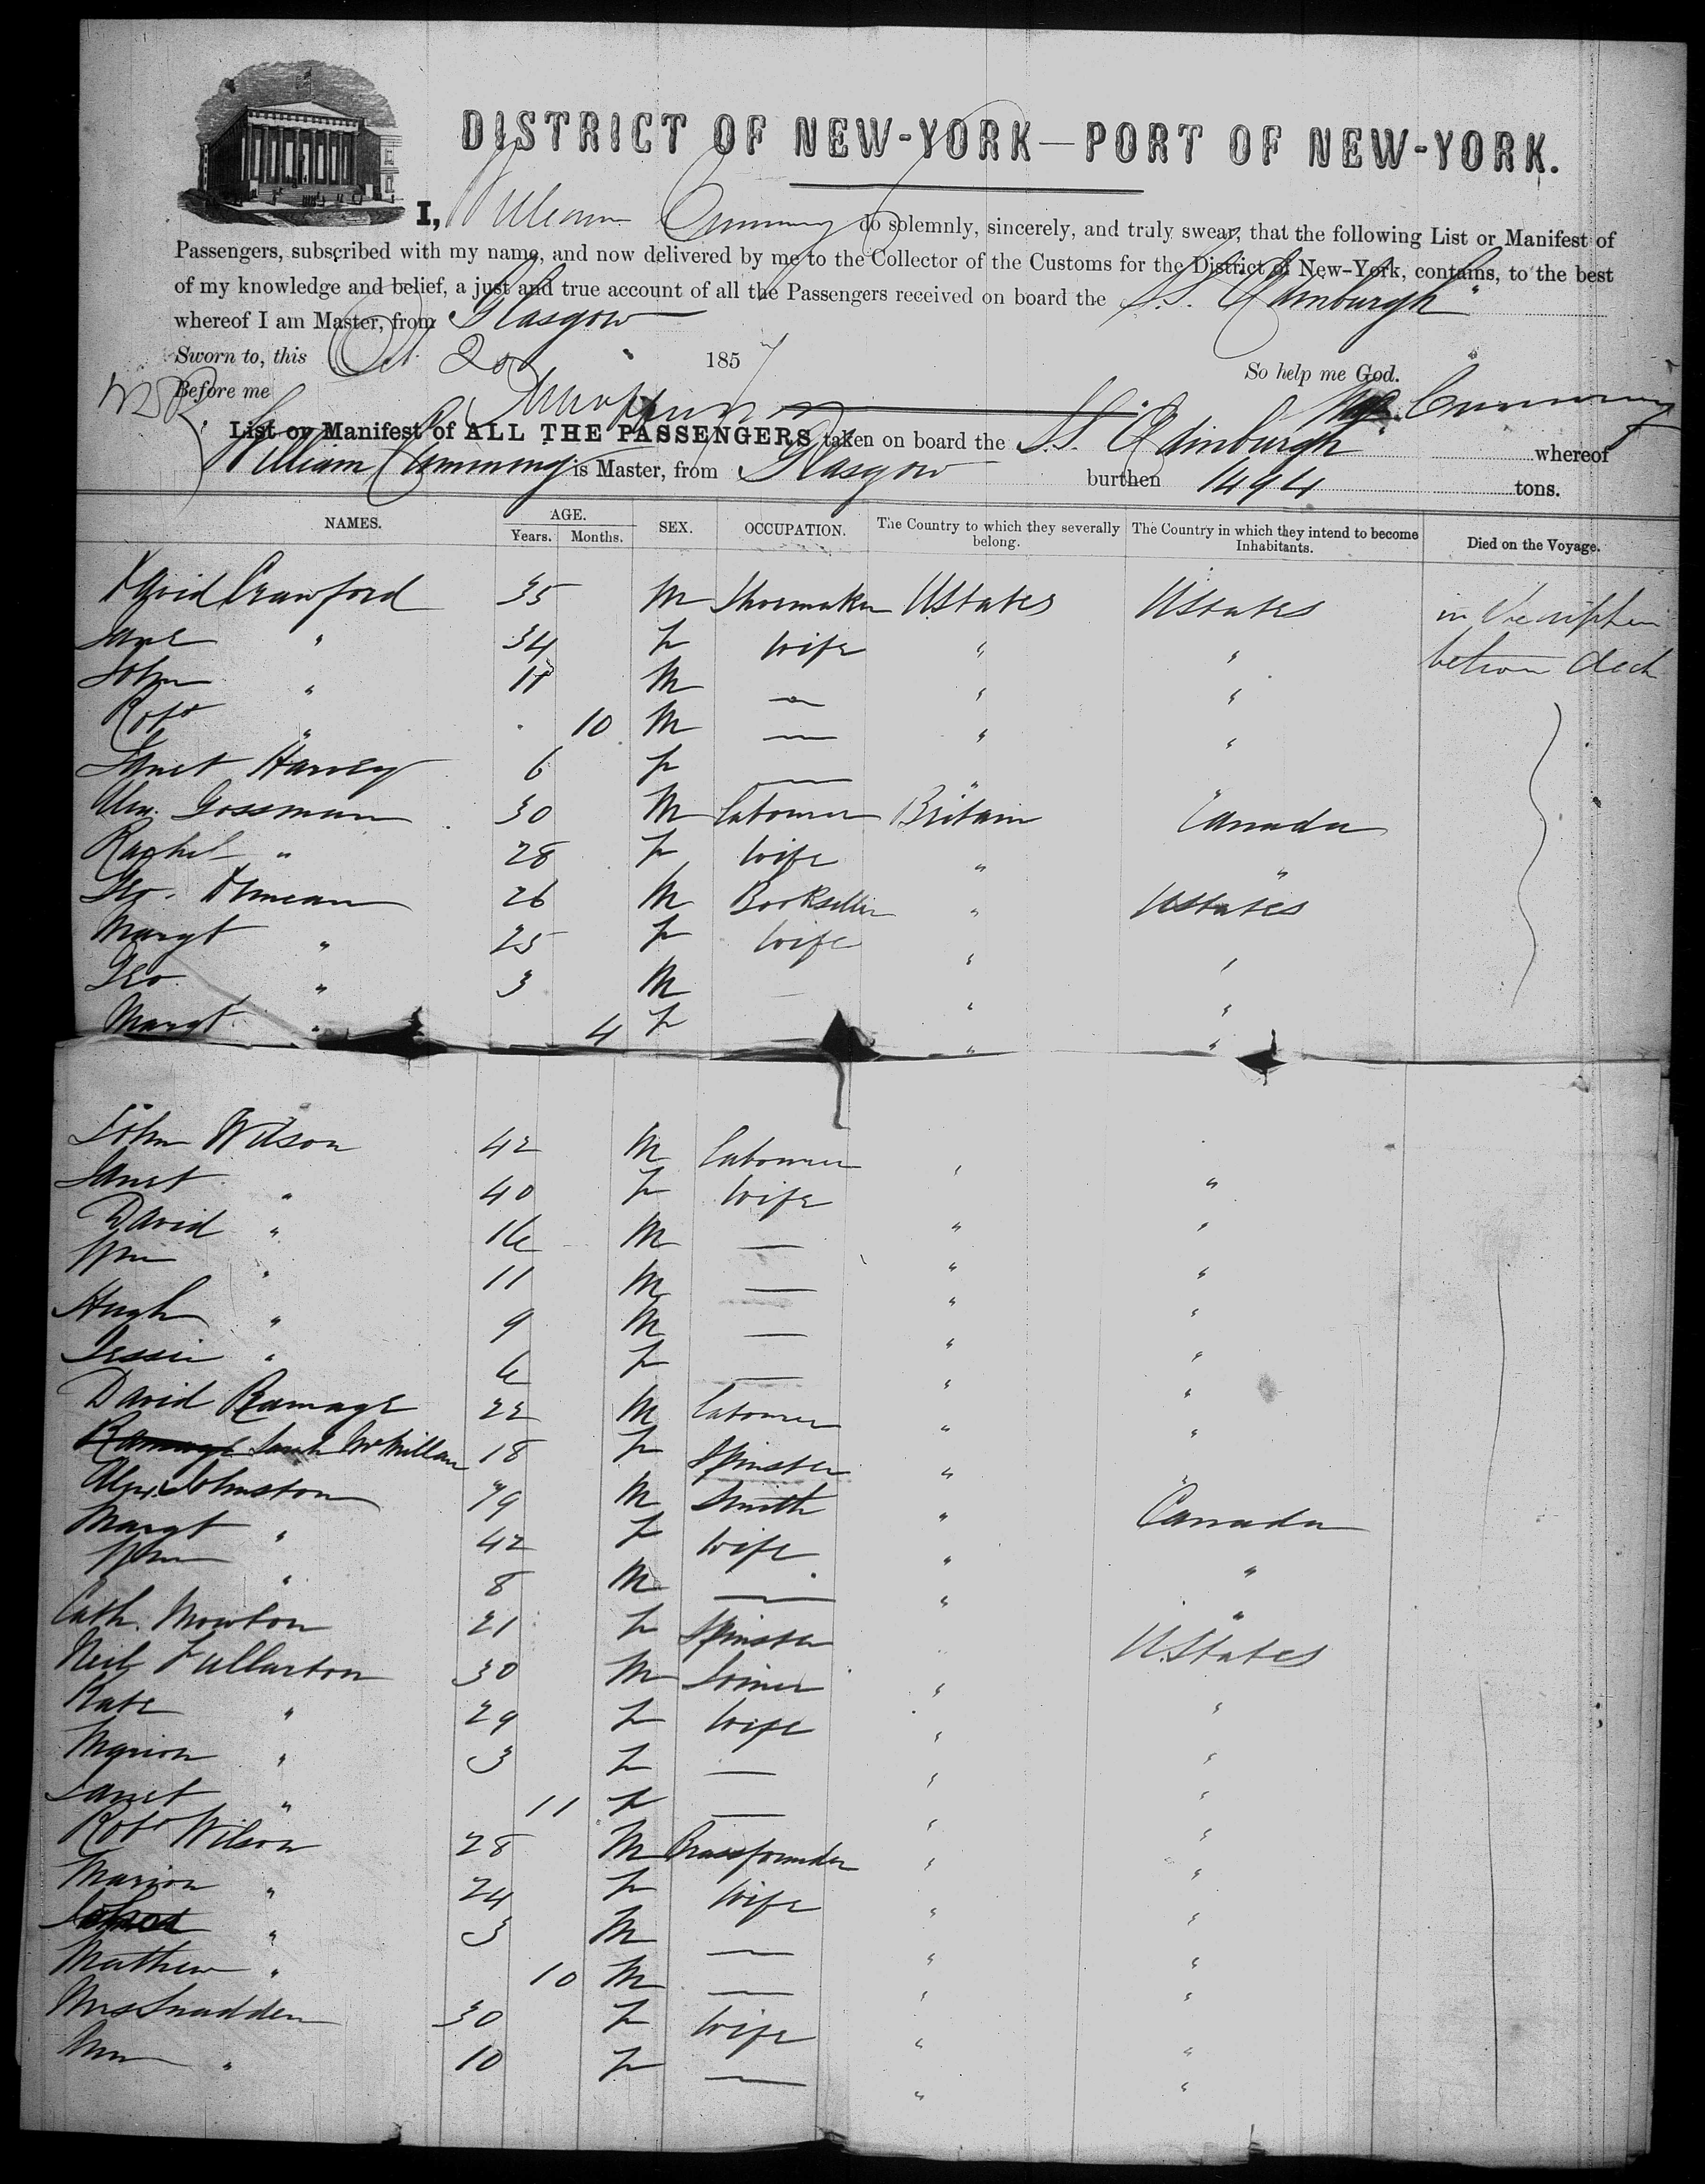 DISTRICT OF NEW-YORK—PORT OF NEW-YORK.
I, William Cumming do solemnly, sincerely, and truly swear, that the following List or Manifest of
Passengers, subscribed with my name, and now delivered by me to the Collector of the Customs for the District of New-York, contains, to the best
of my knowledge and belief, a just and true account of all the Passengers received on board the S.S. Edinburgh
whereof I am Master, from Glasgow
Sworn to, this Oct 20 1857 So help me God.
Before me Wm Cumming
List or Manifest of ALL THE PASSENGERS taken on board the S.S. Edinburgh whereof
William Cumming is Master, from Glasgow burthen 1494 tons.
NAMES. AGE. Years. Months. SEX. OCCUPATION. The Country to which they severally belong. The Country in which they intend to become Inhabitants. Died on the Voyage.
David Crawford 35 M Shoemaker UStates UStates in
Jane " 34 F Wife " " deck
John " 11 M — " "
Robt " 10 M — " "
Janet Harvey 6 F — " "
Alex. Gossman 30 M Labourer Britain Canada
Rachel " 28 F Wife " "
Geo. Duncan 26 M Bookseller " UStates
Margt " 25 F Wife " "
Geo. " 3 M — " "
Margt " 4 F — " "
John Wilson 42 M Labourer " "
Janet " 40 F Wife " "
David " 16 M — " "
Wm " 11 M — " "
Hugh " 9 M — " "
Jessie " 6 F — " "
David Ramage 22 M Labourer " "
Ramage Sarah McMillan 18 F Spinster " "
Alex. Johnston 49 M Smith " Canada
Margt " 42 F Wife " "
Wm " 8 M — " "
Cath. Mowton 21 F Spinster UStates
Neil Fullarton 30 M Joiner " "
Kate " 29 F Wife " "
Marion " 3 F — " "
Janet " 11 F — " "
Robt Wilson 28 M Brassfounder " "
Marion " 24 F Wife " "
" 3 M — " "
Mathew " 10 M — " "
Mrs Snadden 30 F Wife " "
" 10 F — " "